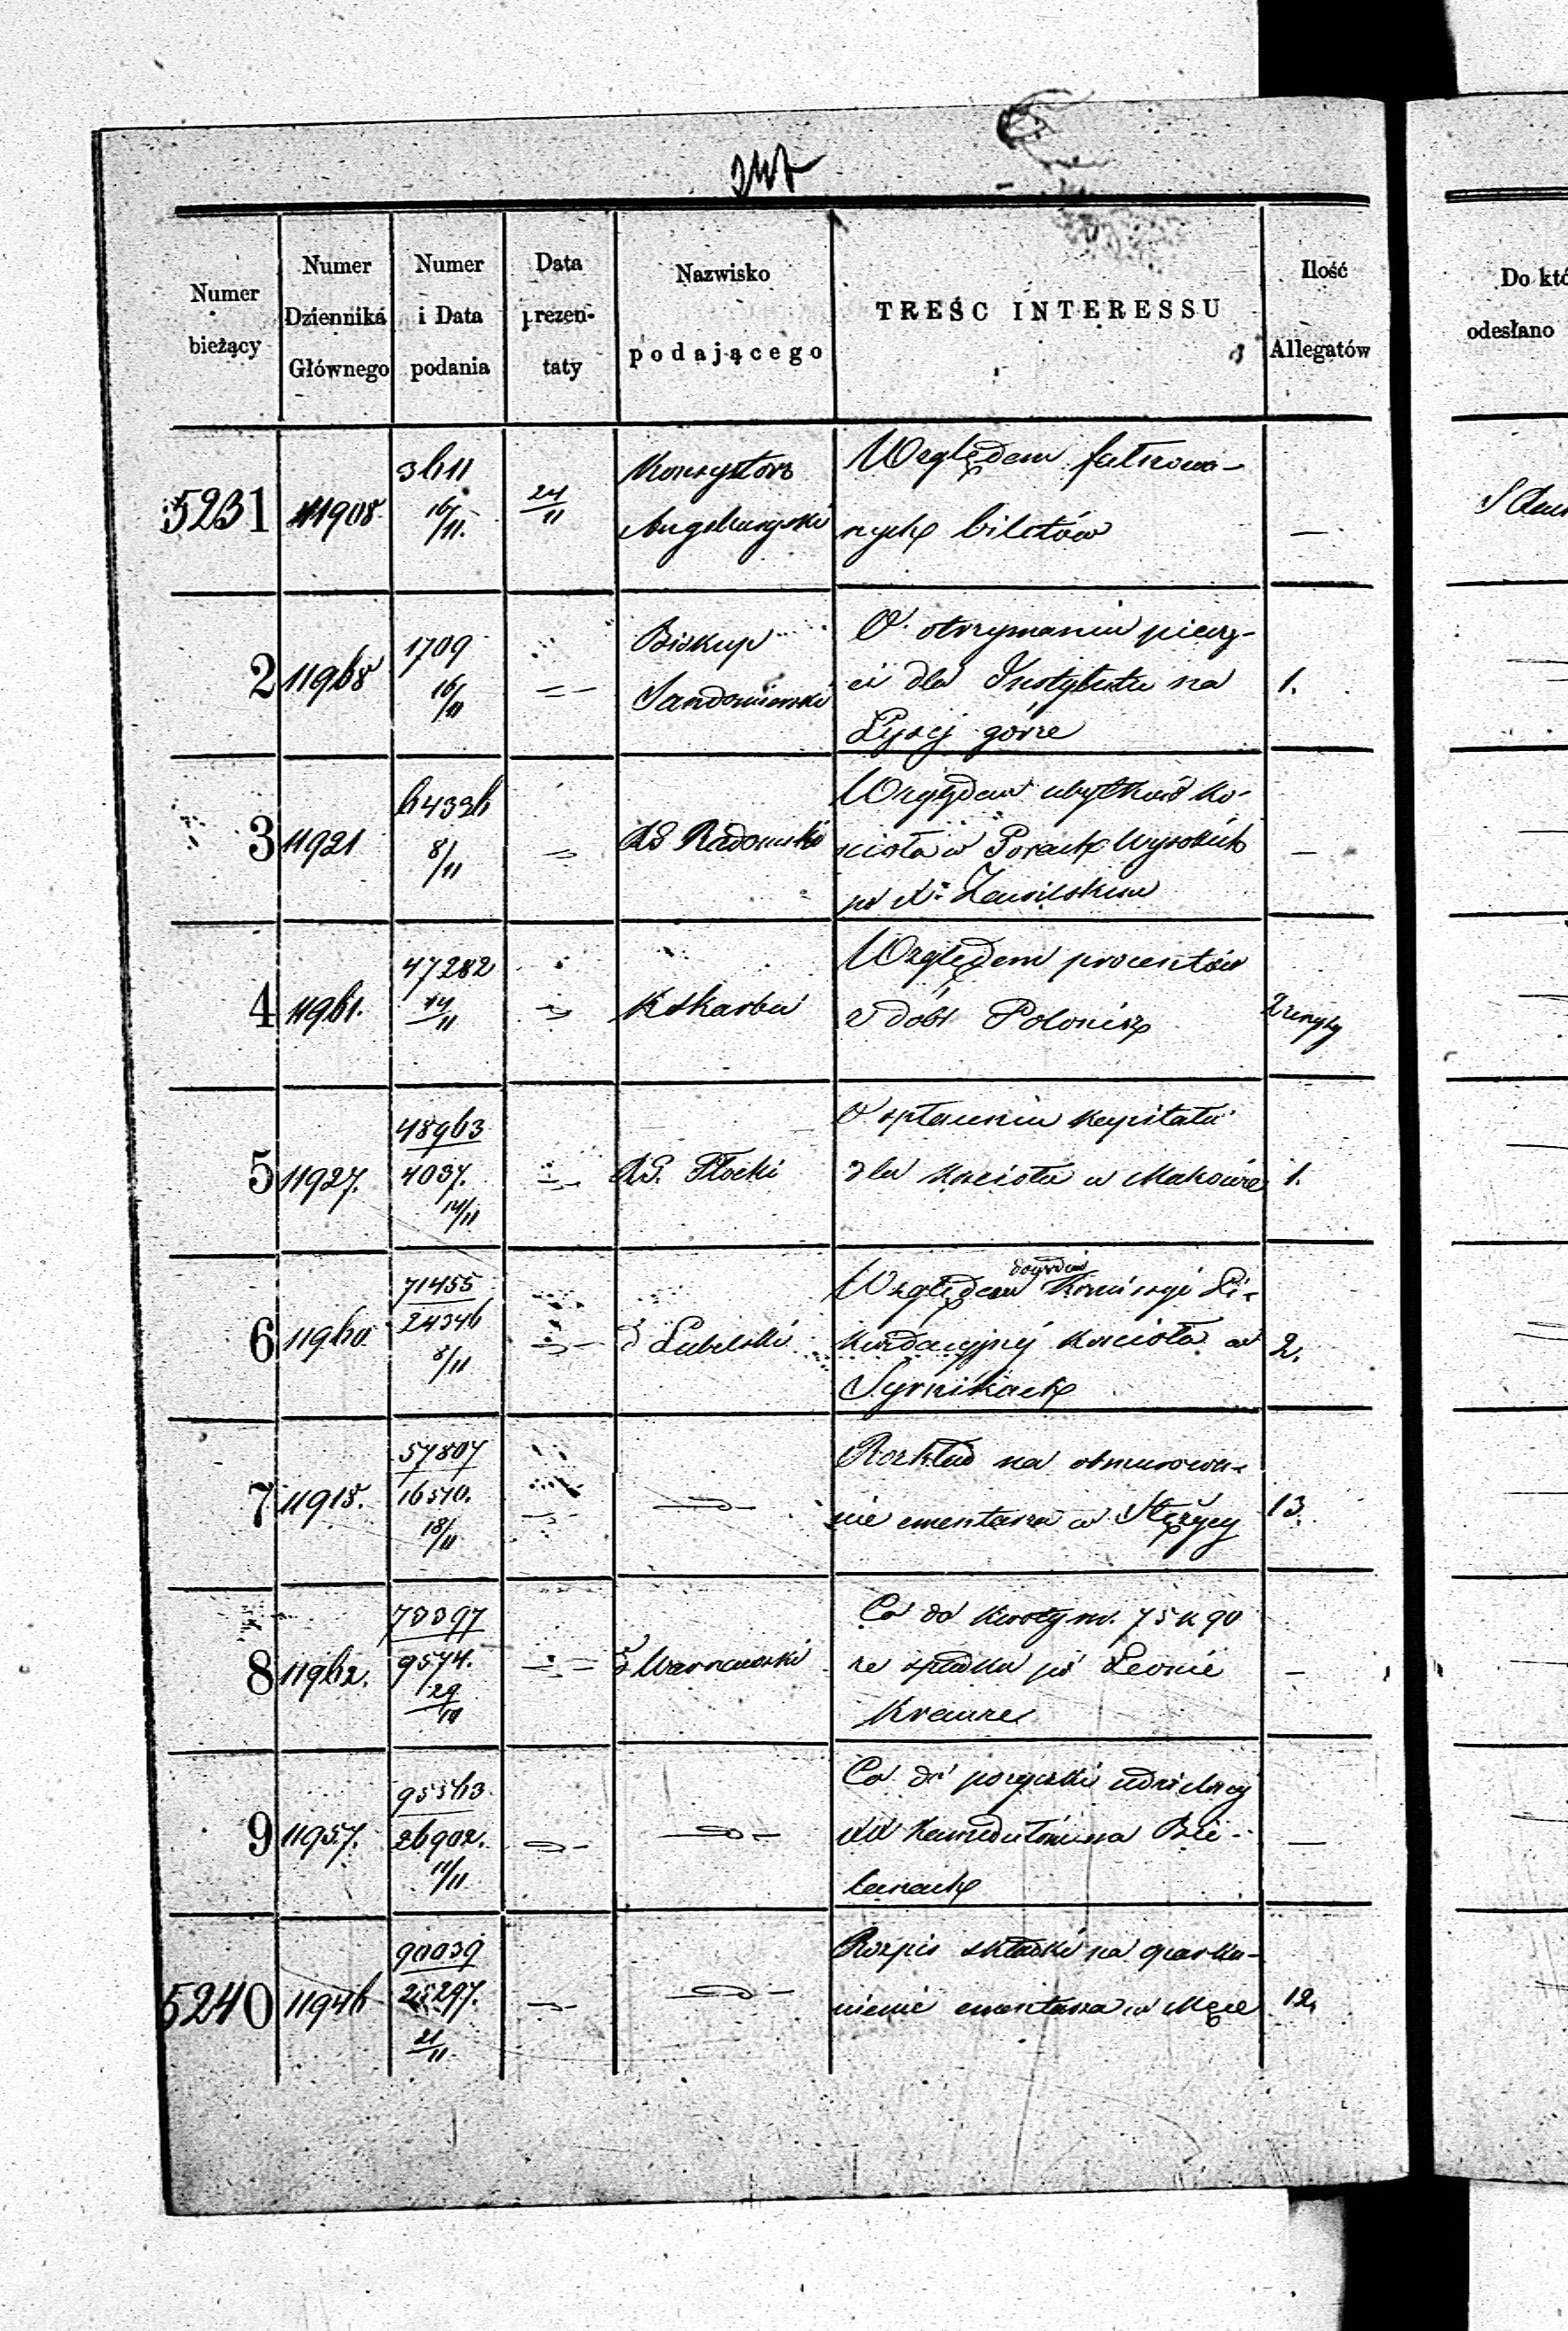 Numer
bieżący
Numer
Dziennika
Głównego
Numer
i Data
podania
Data
prezen-
taty
Nazwisko
podającego
TREŚĆ INTERESSU
Ilość
Allegatów
Do któ
odesłano
5231 11908 3611 16/11. 24/11 Konsystorz Augsburgski
Względem fałszowa-
nych biletów —
2 11968 1709 16/11 Biskup Sandomierski
O otrzymaniu pieczę-
ci dla Instytutu na 1.
Łysej górze
3 11921 64326 8/11 RG Radomski
Względem ubytków Ko-
ścioła w Górach Wysokich —
po X.
4 11961. 47282 14/11 K Skarbu
Względem procentów
z dóbr 2
5 11927. 48963 4037. 14/11 RG. Płocki
O spłaceniu kapitału
dla Kościoła w Makowie 1.
6 11960 71455 24346 8/11 Lubelski
dowodów
Względem Komissyi Li-
kwidacyjnej Kościoła w 2.
Syrnikach
7 11915. 57807 16510. 18/11
Rozkład na obmurowa-
nie cmentarza w Stężycy 13
8 11962. 73397 9574. 29/10 Warszawski
Co do kwoty rs. 75 k 90
ze spadku po Leonie —
Krauze
9 11957. 95563 26902. 11/11
Co do pożyczki udzielonej
XX Kamedułom na Bie- —
lanach
5240 11946 90039 25297. 21/11
Rozpis składki na oparka-
nienie cmentarza w 12,